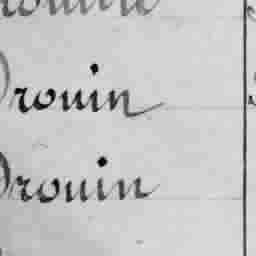 Drouin
Drouin